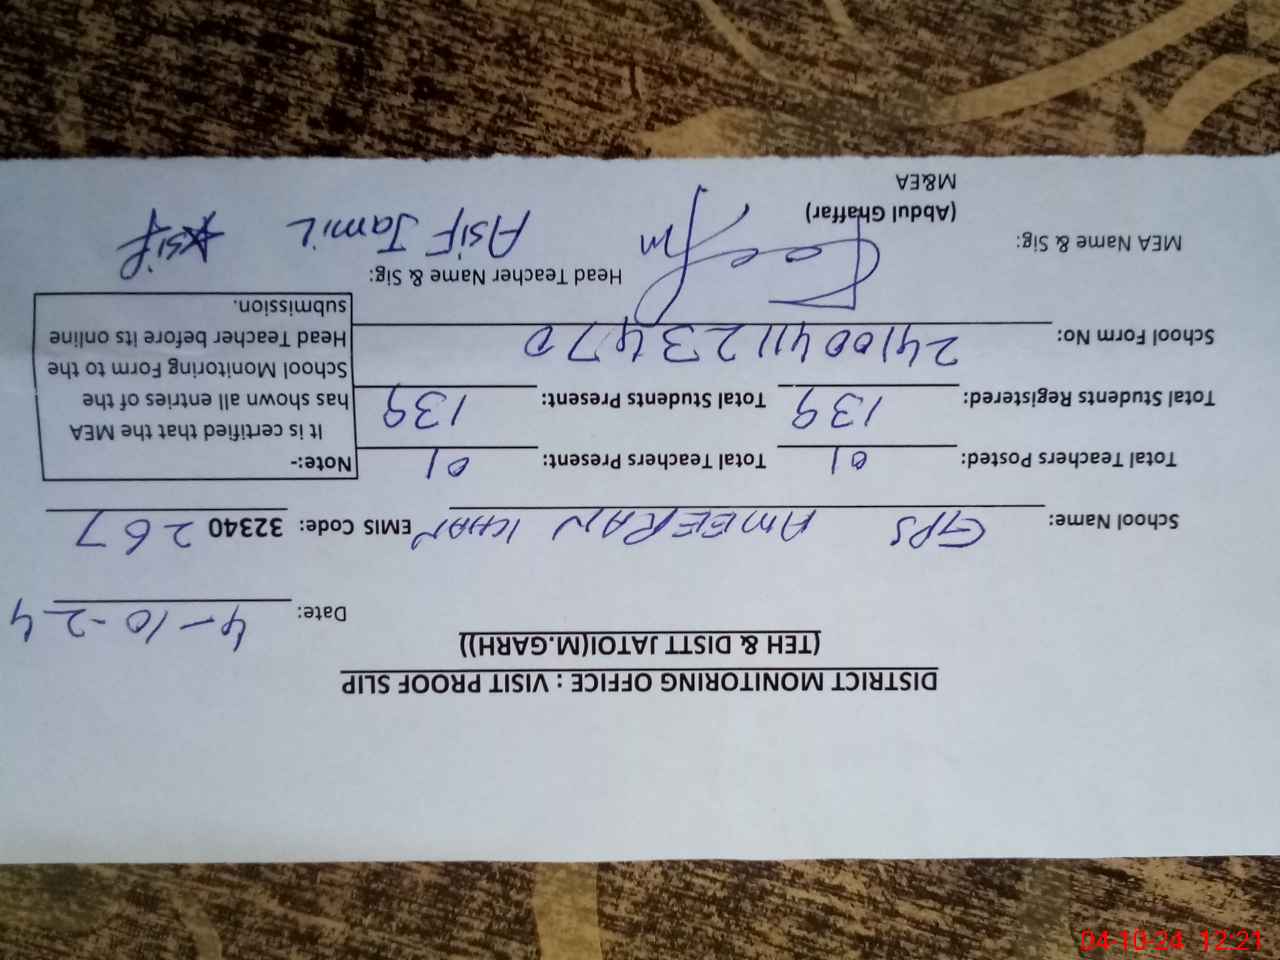 DISTRICT MONITORING OFFICE : VISIT PROOF SLIP
(TEH & DISTT JATOI(M.GARH))
Date: 4-10-24
School Name: GPS AMEERAN KHAN EMIS Code: 32340 267
Total Teachers Posted: 01 Total Teachers Present: 01
Total Students Registered: 139 Total Students Present: 139
School Form No: 2410041123470
Note:-
It is certified that the MEA
has shown all entries of the
School Monitoring Form to the
Head Teacher before its online
submission.
MEA Name & Sig: Head Teacher Name & Sig: Asif Jamil Asif
(Abdul Ghaffar)
M&EA
04-10-24 12:21